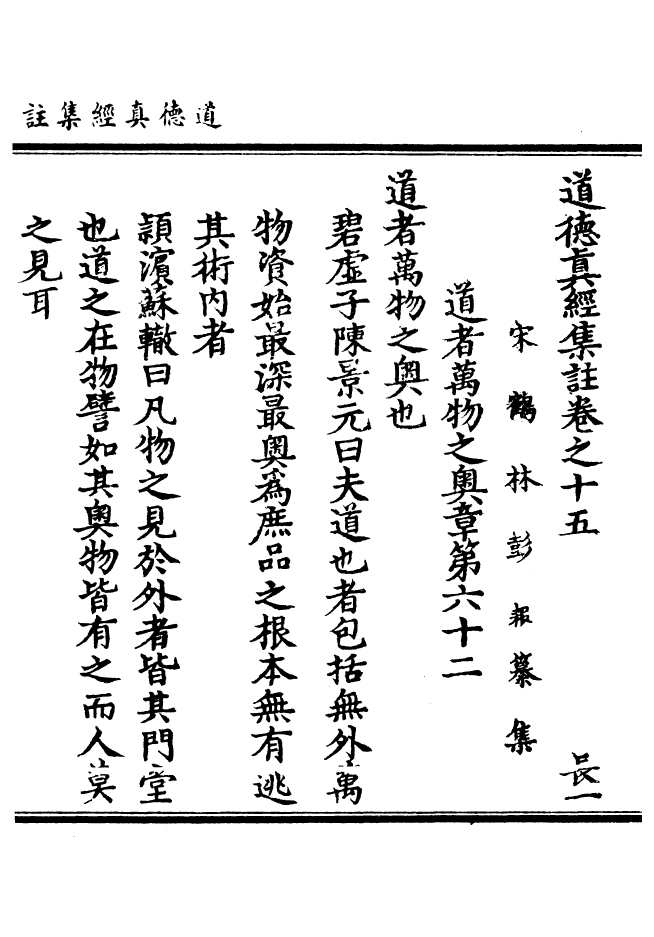 道德真經集註
道德真經集註卷之十五 長一
宋鶴林彭耜纂集
道者萬物之奧章第六十二
道者萬物之奧也
碧虛子陳景元曰夫道也者包括無外萬
物資始最深最奧為庶品之根本無有逃
其術內者
頴濵蘇轍曰凡物之見於外者皆其門堂
也道之在物譬如其奧物皆有之而人莫
之見耳